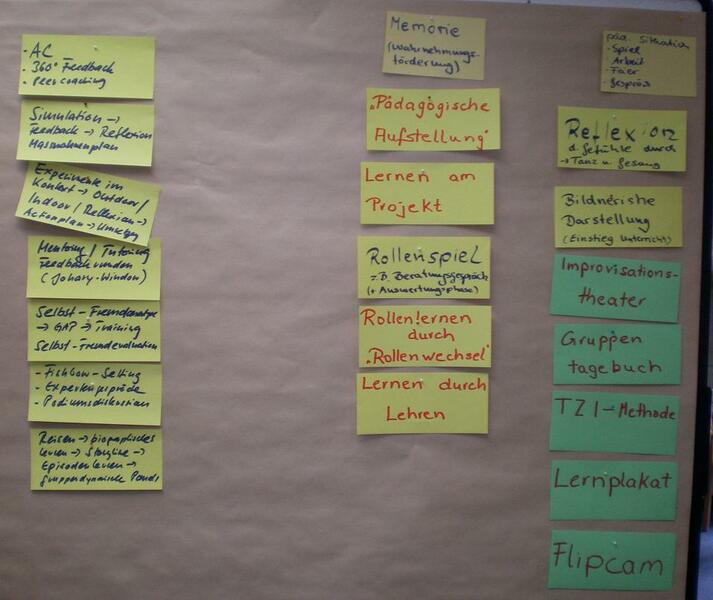 - AC
- 360° Feedback
- Peercoaching
Simulation →
Feedback → Reflexion
Massnahmenplan
Experimente im
Kontext → Outdoor/
Indoor / Reflexion →
Actionplan →
Mentoring / Tutoring
Feedbackrunden
(Johary-Window)
Selbst-Fremdanalyse
→ GAP → Training
Selbst-Fremdevaluation
- Fishbow-Setting
- Expertengespräche
- Podiumsdiskussion
Reisen → biographisches
lernen → Storyline →
Episodenlernen →
gruppendynamische
Memorie
(Wahrnehmungs-
förderung)
"Pädagogische
Aufstellung"
Lernen am
Projekt
Rollenspiel
z.B. Beratungsgespräch
(+ Auswertungsphase)
Rollenlernen
durch
"Rollenwechsel"
Lernen durch
Lehren
päd. Situation
- Spiel
- Arbeit
- Feier
- Gespräch
Reflexion
d. Gefühle durch
→ Tanz u. Gesang
Bildnerische
Darstellung
(Einstieg Unterricht)
Improvisations-
theater
Gruppen
tagebuch
TZI-Methode
Lernplakat
Flipcam